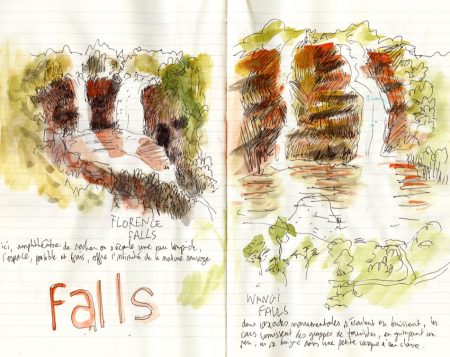 FLORENCE
FALLS
ici, amphithéâtre de rocher où s'écoule une eau limpide,
l'espace, paisible et frais, offre l'intimité de la nature sauvage
falls
WANGI
FALLS
deux cascades monumentales s'écoulent en bruissant, les
cars vomissent des grappes de touristes, en grimpant un
peu, on se baigne dans une petite vasque à l'eau claire.